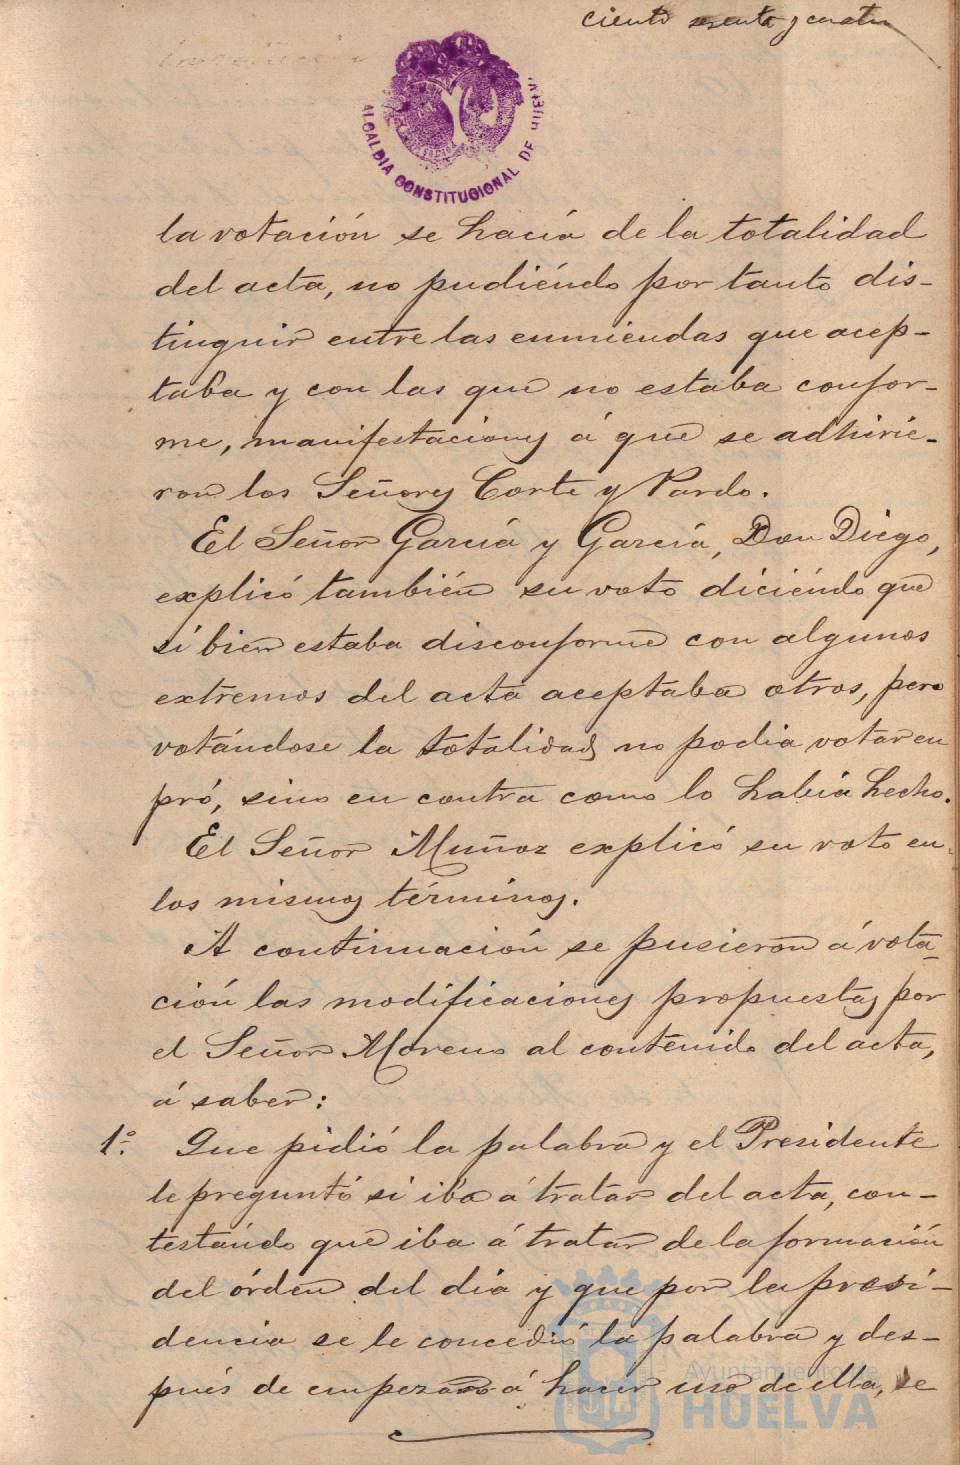 ciento sesenta y cuatro
ALCALDIA CONSTITUCIONAL DE HUELVA
la votación se hacía de la totalidad
del acta, no pudiéndo por tanto dis-
tinguir entre las enmiendas que acep-
taba y con las que no estaba confor-
me, manifestaciones á que se adhirie-
ron los Señores Corte y Pardo.
El Señor García y García, Don Diego,
explicó también su voto diciéndo que
si bien estaba disconforme con algunos
extremos del acta aceptaba otros, pero
votándose la totalidad no podia votar en
pró, sino en contra como lo había hecho.
El Señor Muñoz explicó su voto en
los mismos términos.
A continuación se pusieron á vota-
ción las modificaciones propuestas por
el Señor Moreno al contenido del acta,
á saber:
1.º Que pidió la palabra y el Presidente
le preguntó si iba á tratar del acta, con-
testándo que iba á tratar de la formación
del órden del día y que por la presi-
dencia se le concedió la palabra y des-
pués de empezar á hacer uso de ella, se
Ayuntamiento de
HUELVA